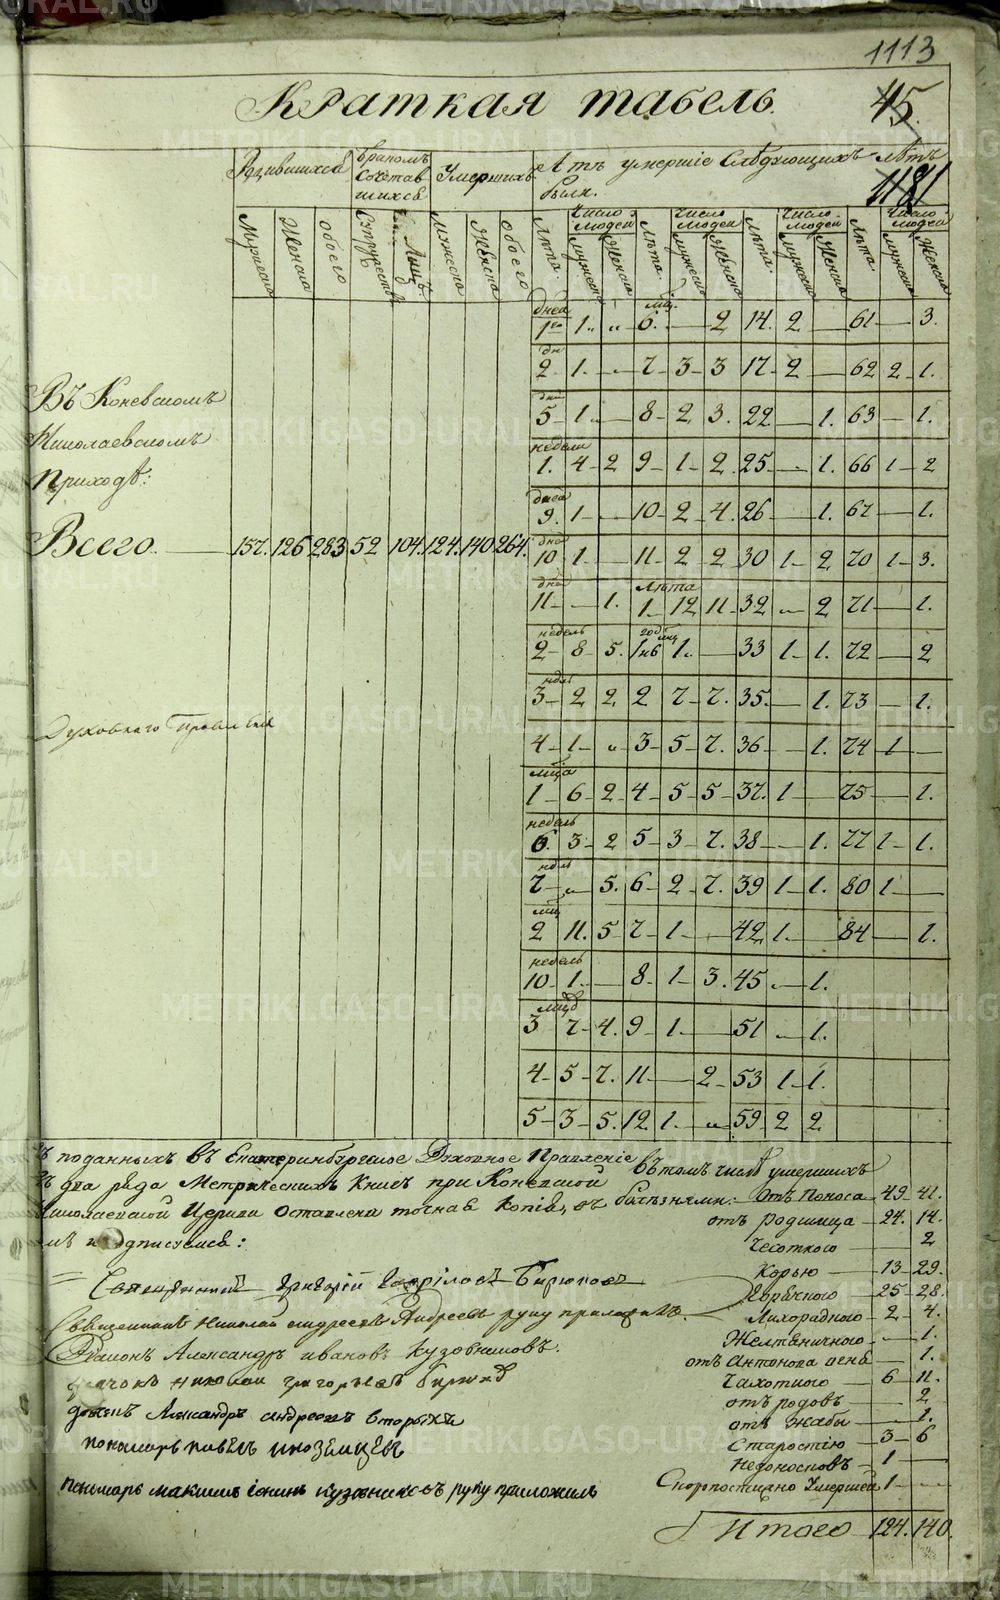 1113
Краткая табель.
45.
1181
Родившихся
бракомъ сочетавшихся
Умершихъ
А тѣ умершіе Слѣдующихъ лѣтъ
были.
Число Людей
Число Людей
Число Людей
Число Людей
Мужеска Женска обоего Супружествъ Лицъ Мужеска Женска обоего Лѣта. Мужеска Женска Лѣта. Мужеска Женска Лѣта. Мужеска Женска Лѣта. Мужеска Женска
дней 1го 1. „ мц. 6. — 2 14. 2 — 61 — 3.
дн 2 1. — 7 3 3 17. 2 — 62 2 1.
дни 5 1. — 8 2 3. 22 — 1. 63 — 1.
недели 1. 4 2 9 1 2. 25 — 1. 66 1 2
дней 9. 1 — 10 2 4. 26 — 1. 67 — 1.
дней 10 1. — 11 2 2 30 1 2 70 1 3.
дней 11 — 1. Лѣта 1 12 11 32 — 2 71 — 1.
недель 2 8 5. 1. — 33 1 1. 72 — 2
3 2 2 2 7 7. 35. — 1. 73 — 1.
4 1 „ 3 5 7. 36 — 1. 74 1 —
мца 1 6 2 4 5 5 37. 1 — 75 — 1.
недель 6. 3 2 5 3 7. 38 — 1. 77 1 1.
7 „ 5. 6 2 7. 39 1 1. 80 1 —
мц 2 11. 5 7 1 — 42 1. — 84 — 1.
недель 10 1. — 8 1 3. 45 — 1.
3 7 4. 9 1 — 51 — 1.
4 5 7. 11 — 2 53 1 1.
5 3 5. 12 1. „ 59. 2 2
Въ Коневскомъ
Николаевскомъ
Приходѣ:
Всего — 157. 126 283 52 104. 124. 140. 264.
Духовнаго Правленія
поданныхъ въ Екатеринбургское Духовное Правленіе
два ряда Метрическихъ Книгъ при Коневской
Николаевской Церкви оставлена точная копія, въ
подписуемся:
Священникъ Григорій Бирюковъ
Священникъ Николай Андреевъ руку приложилъ.
Діаконъ Александръ Ивановъ Кузовниковъ.
дьячокъ николай григорьевъ бирюков
Александръ андреевъ
пономарь павелъ иноземцевъ
пономарь максимъ кузовниковъ руку приложилъ
въ томъ числѣ умершихъ
болѣзнями: Отъ Поноса 49 41.
отъ родимца 24. 14.
Чесоткою — 2
Корью 13 29.
Горячкою 25 28.
Лихорадкою 2 4.
Желтяничкою — 1.
отъ Антонова огня — 1.
Чахоткою 6 11.
отъ родовъ — 2
отъ жабы — 1.
Старостію 3 6
недоносковъ 1 —
Скоропостижно Умершей 1 —
Итого 124. 140.
METRIKI.GASO-URAL.RU